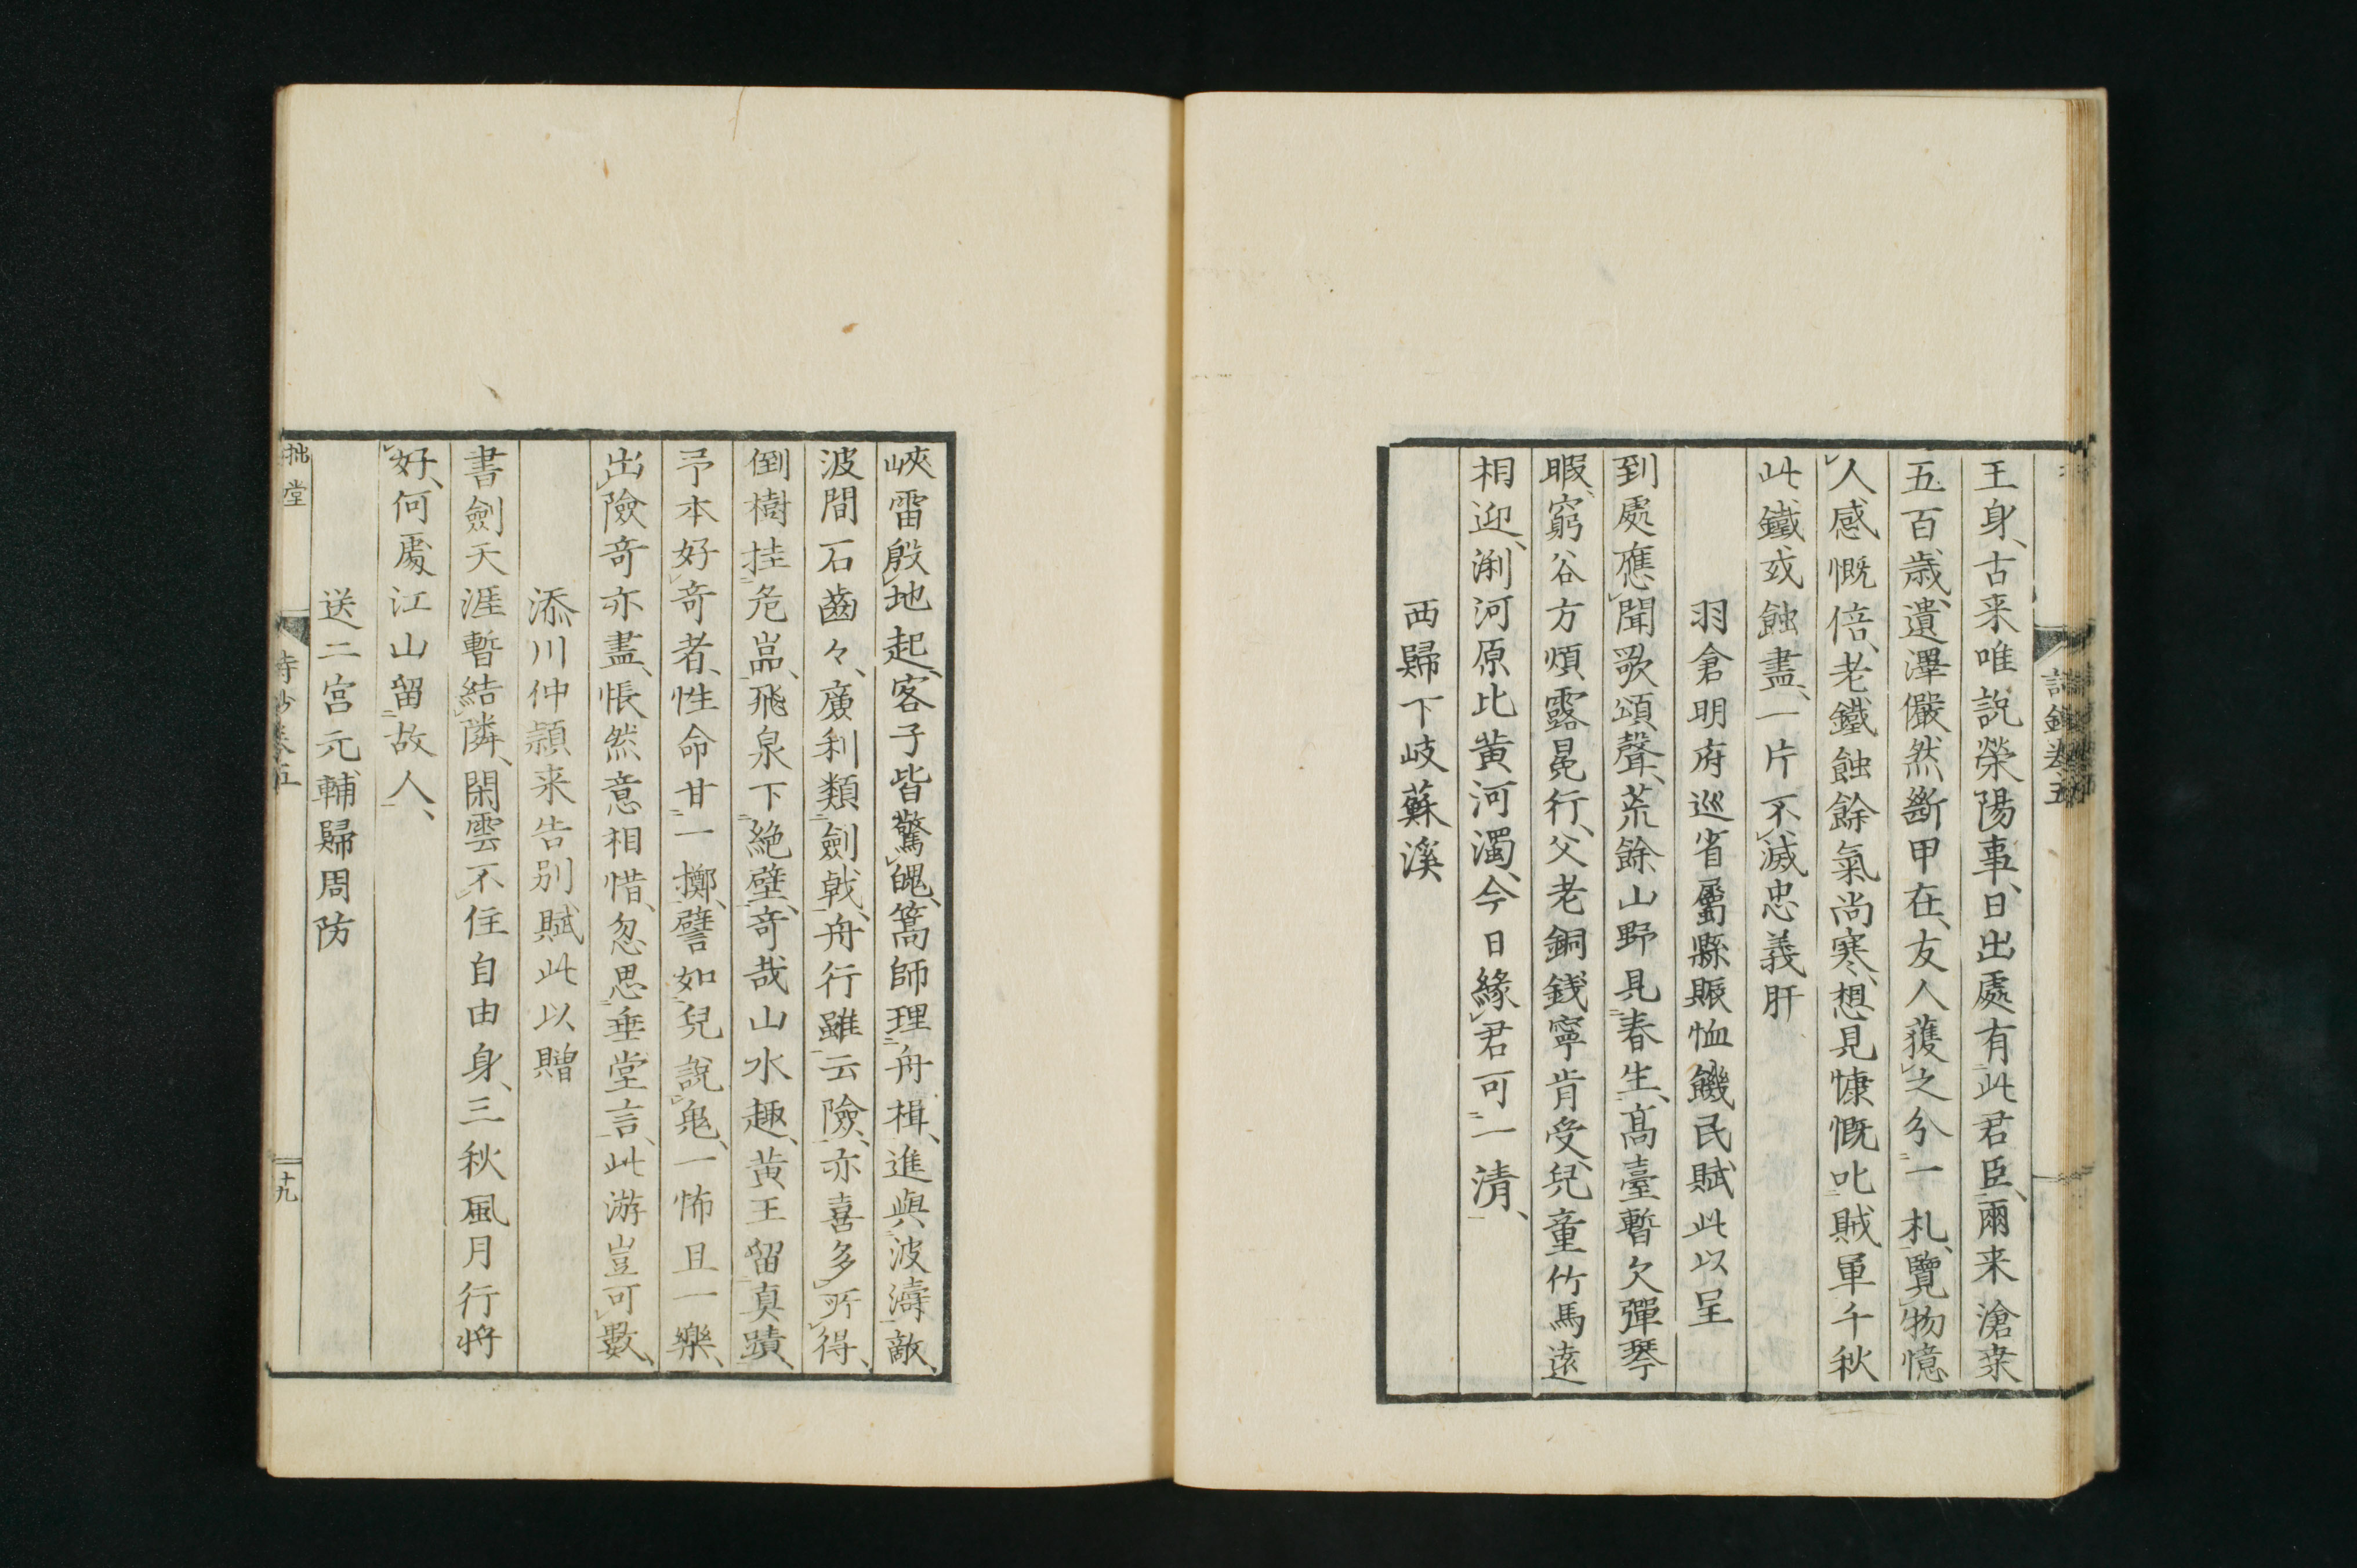 王身、古来唯説榮陽事、日出處有此君臣、爾来滄桒
五百歳、遺澤儼然斷甲在、友人獲之分一札、覽物憶
人感慨倍、老鐵蝕餘氣尚寒、想見慷慨叱賊單千秋
此鐵或蝕盡、一片不滅忠義肝
羽倉明府巡省屬縣賑恤饑民賦此以呈
到處應聞歌頌聲、荒餘山野見春生、髙臺暫欠彈琴
暇、窮谷方煩露冕行、父老銅銭寧肯受、兒童竹馬遠
相迎、渕河原比黄河濁、今日緣君可一清、
西歸下岐蘇溪
峽雷殷地起、客子皆驚魄、篙師理舟楫、進與波濤敵、
波間石齒々、廉利類劍戟、舟行雖云險、亦喜多所得、
倒樹挂危嵓、飛泉下絶壁、奇哉山水趣、黄王留真蹟、
予本好奇者、性命甘一擲、譬如兒説鬼、一怖且一樂、
出險奇亦盡、悵然意相惜、忽思垂堂言、此游豈可數、
添川仲頴来告別賦此以贈
書劍天涯暫結隣、閑雲不住自由身、三秋風月行将
好、何處江山留故人、
送二宮元輔歸周防
拙堂
詩鈔卷五
十九